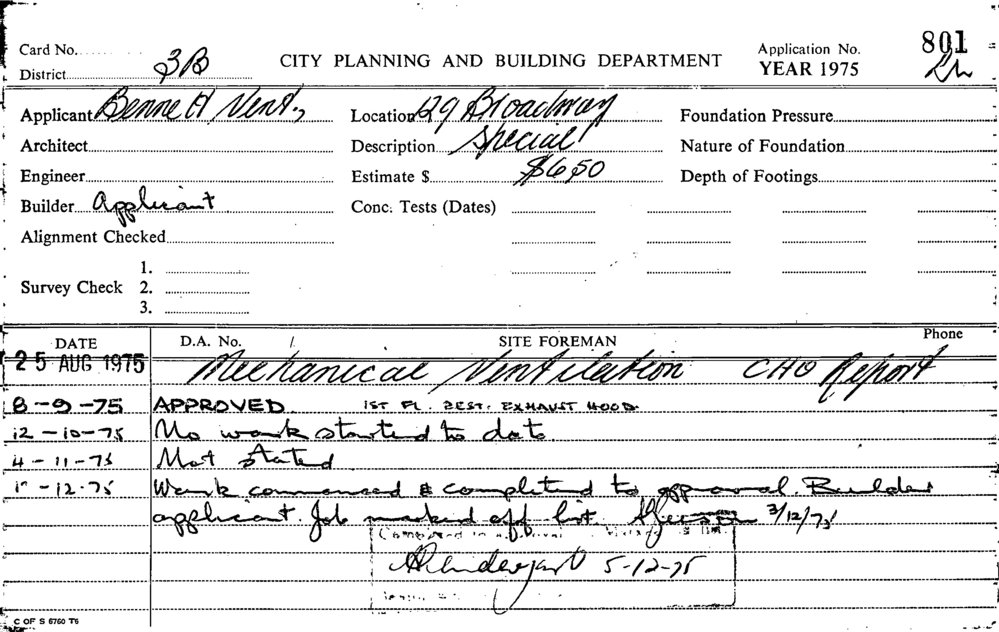 Card No. 801
District 3B CITY PLANNING AND BUILDING DEPARTMENT Application No. YEAR 1975
Applicant Bennett Vent. Location 29 Broadway Foundation Pressure
Architect Description Special Nature of Foundation
Engineer Estimate $ $650 Depth of Footings
Builder Applicant Conc. Tests (Dates)
Alignment Checked
1.
Survey Check 2.
3.
DATE D.A. No. SITE FOREMAN Phone
25 AUG 1975 Mechanical Ventilation CHO Report
8-9-75 APPROVED. 1ST FL. REST. EXHAUST HOOD.
12-10-75 No work started to date
4-11-75 Not stated
-12-75 Work commenced & completed to approval. Builder
applicant. Job marked off list. 3/12/75
5-12-75
C OF S 6760 T6